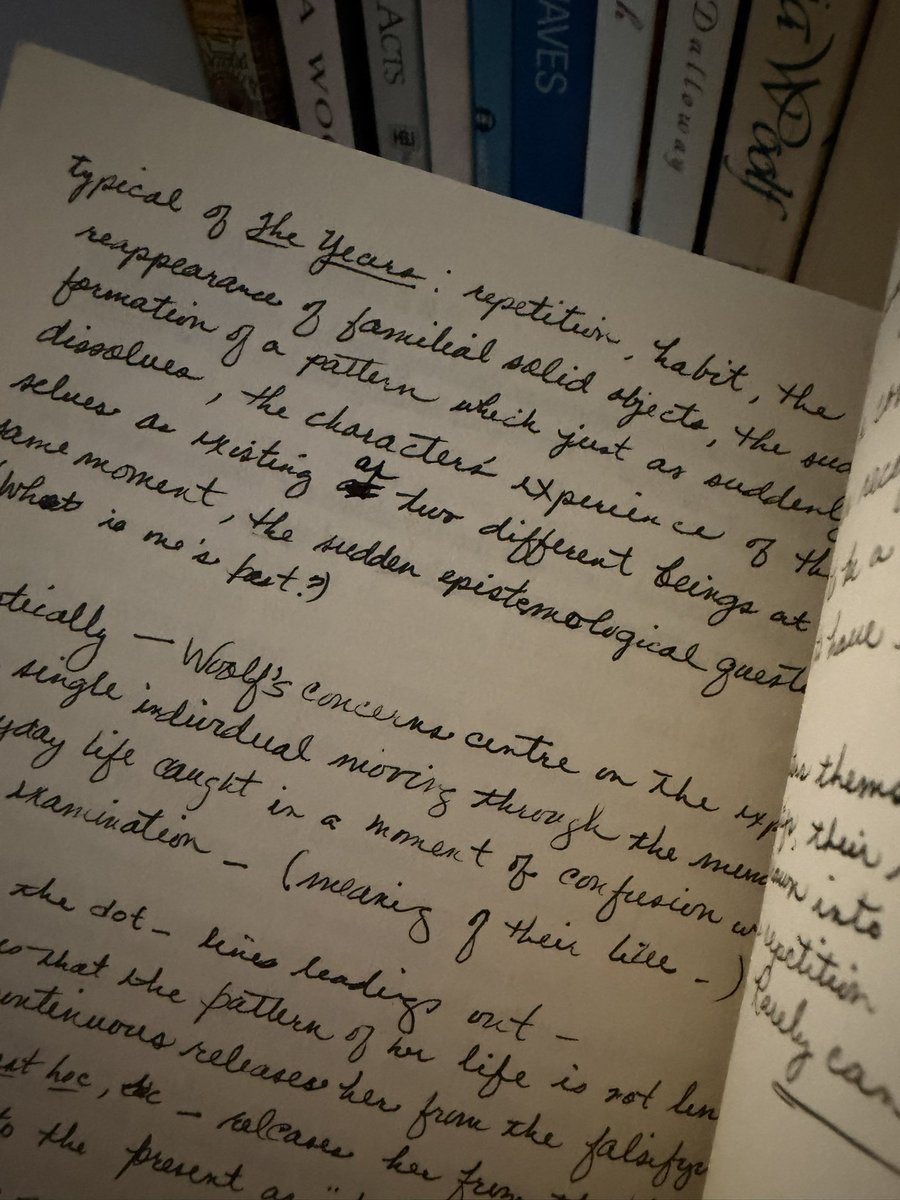 A WOO
ACTS
AVES
Dalloway
ia Woolf
typical of The Years: repetition, habit, the
reappearance of familial solid objects, the sud
formation of a pattern which just as suddenly
dissolves, the characters' experience of th
selves as existing as two different beings at
same moment, the sudden epistemological quest
(What is one's past?)
tically — Woolf's concerns centre on the exp
single individual moving through the mem
yday life caught in a moment of confusion
examination — (meaning of their life —)
the dot — lines leadings out —
so that the pattern of her life is not lin
ontinuous releases her from the falsifyi
st hoc, — releases her from
to the present as "
be a
have
themse
their
into
repetition
Rarely can